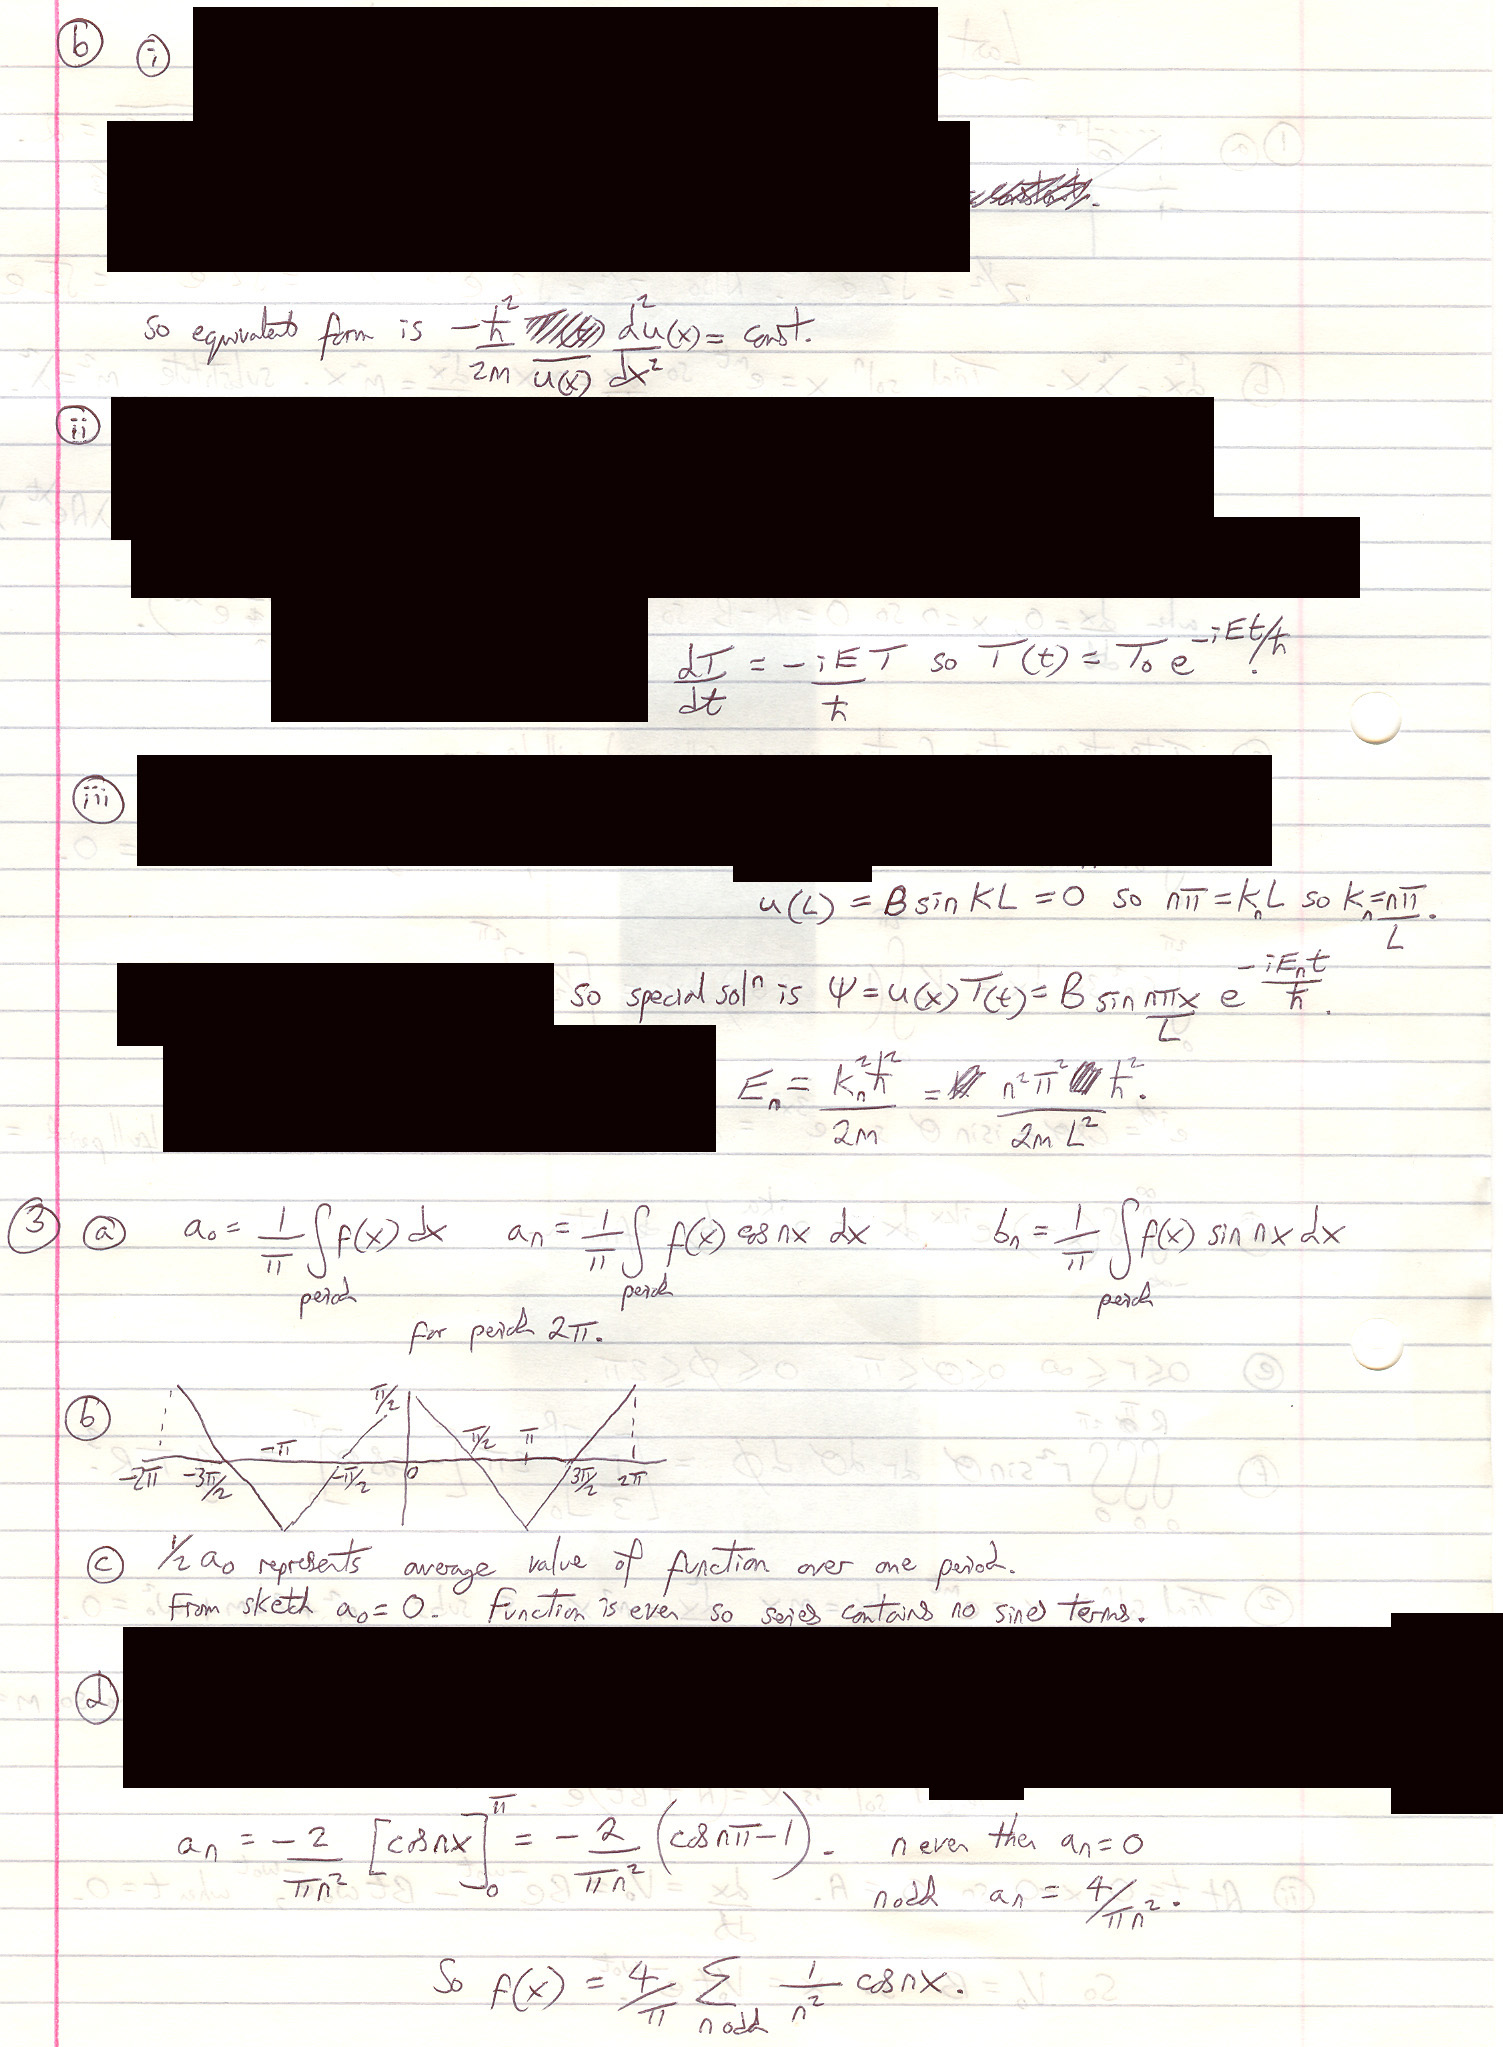 b i
so equivalent form is -ħ²/2m 1/u(x) d²u(x)/dx² = const.
ii
dT/dt = -iE/ħ T so T(t) = T₀ e^(-iEt/ħ).
iii
u(L) = B sin KL = 0 so nπ = kₙL so kₙ = nπ/L.
so special solⁿ is Ψ = u(x) T(t) = B sin nπx/L e^(-iEₙt/ħ).
Eₙ = kₙ²ħ²/2m = n²π²ħ²/2mL².
3 a a₀ = 1/π ∫ f(x) dx aₙ = 1/π ∫ f(x) cos nx dx bₙ = 1/π ∫ f(x) sin nx dx
period period period
for period 2π.
b
π/2
-π π/2 π
-2π -3π/2 -π/2 0 3π/2 2π
c 1/2 a₀ represents average value of function over one period.
From sketch a₀ = 0. Function is even so series contains no sines terms.
d
aₙ = -2/πn² [cos nx]₀^π = -2/πn² (cos nπ - 1). n even then aₙ = 0
n odd aₙ = 4/πn².
So f(x) = 4/π Σ n odd 1/n² cos nx.